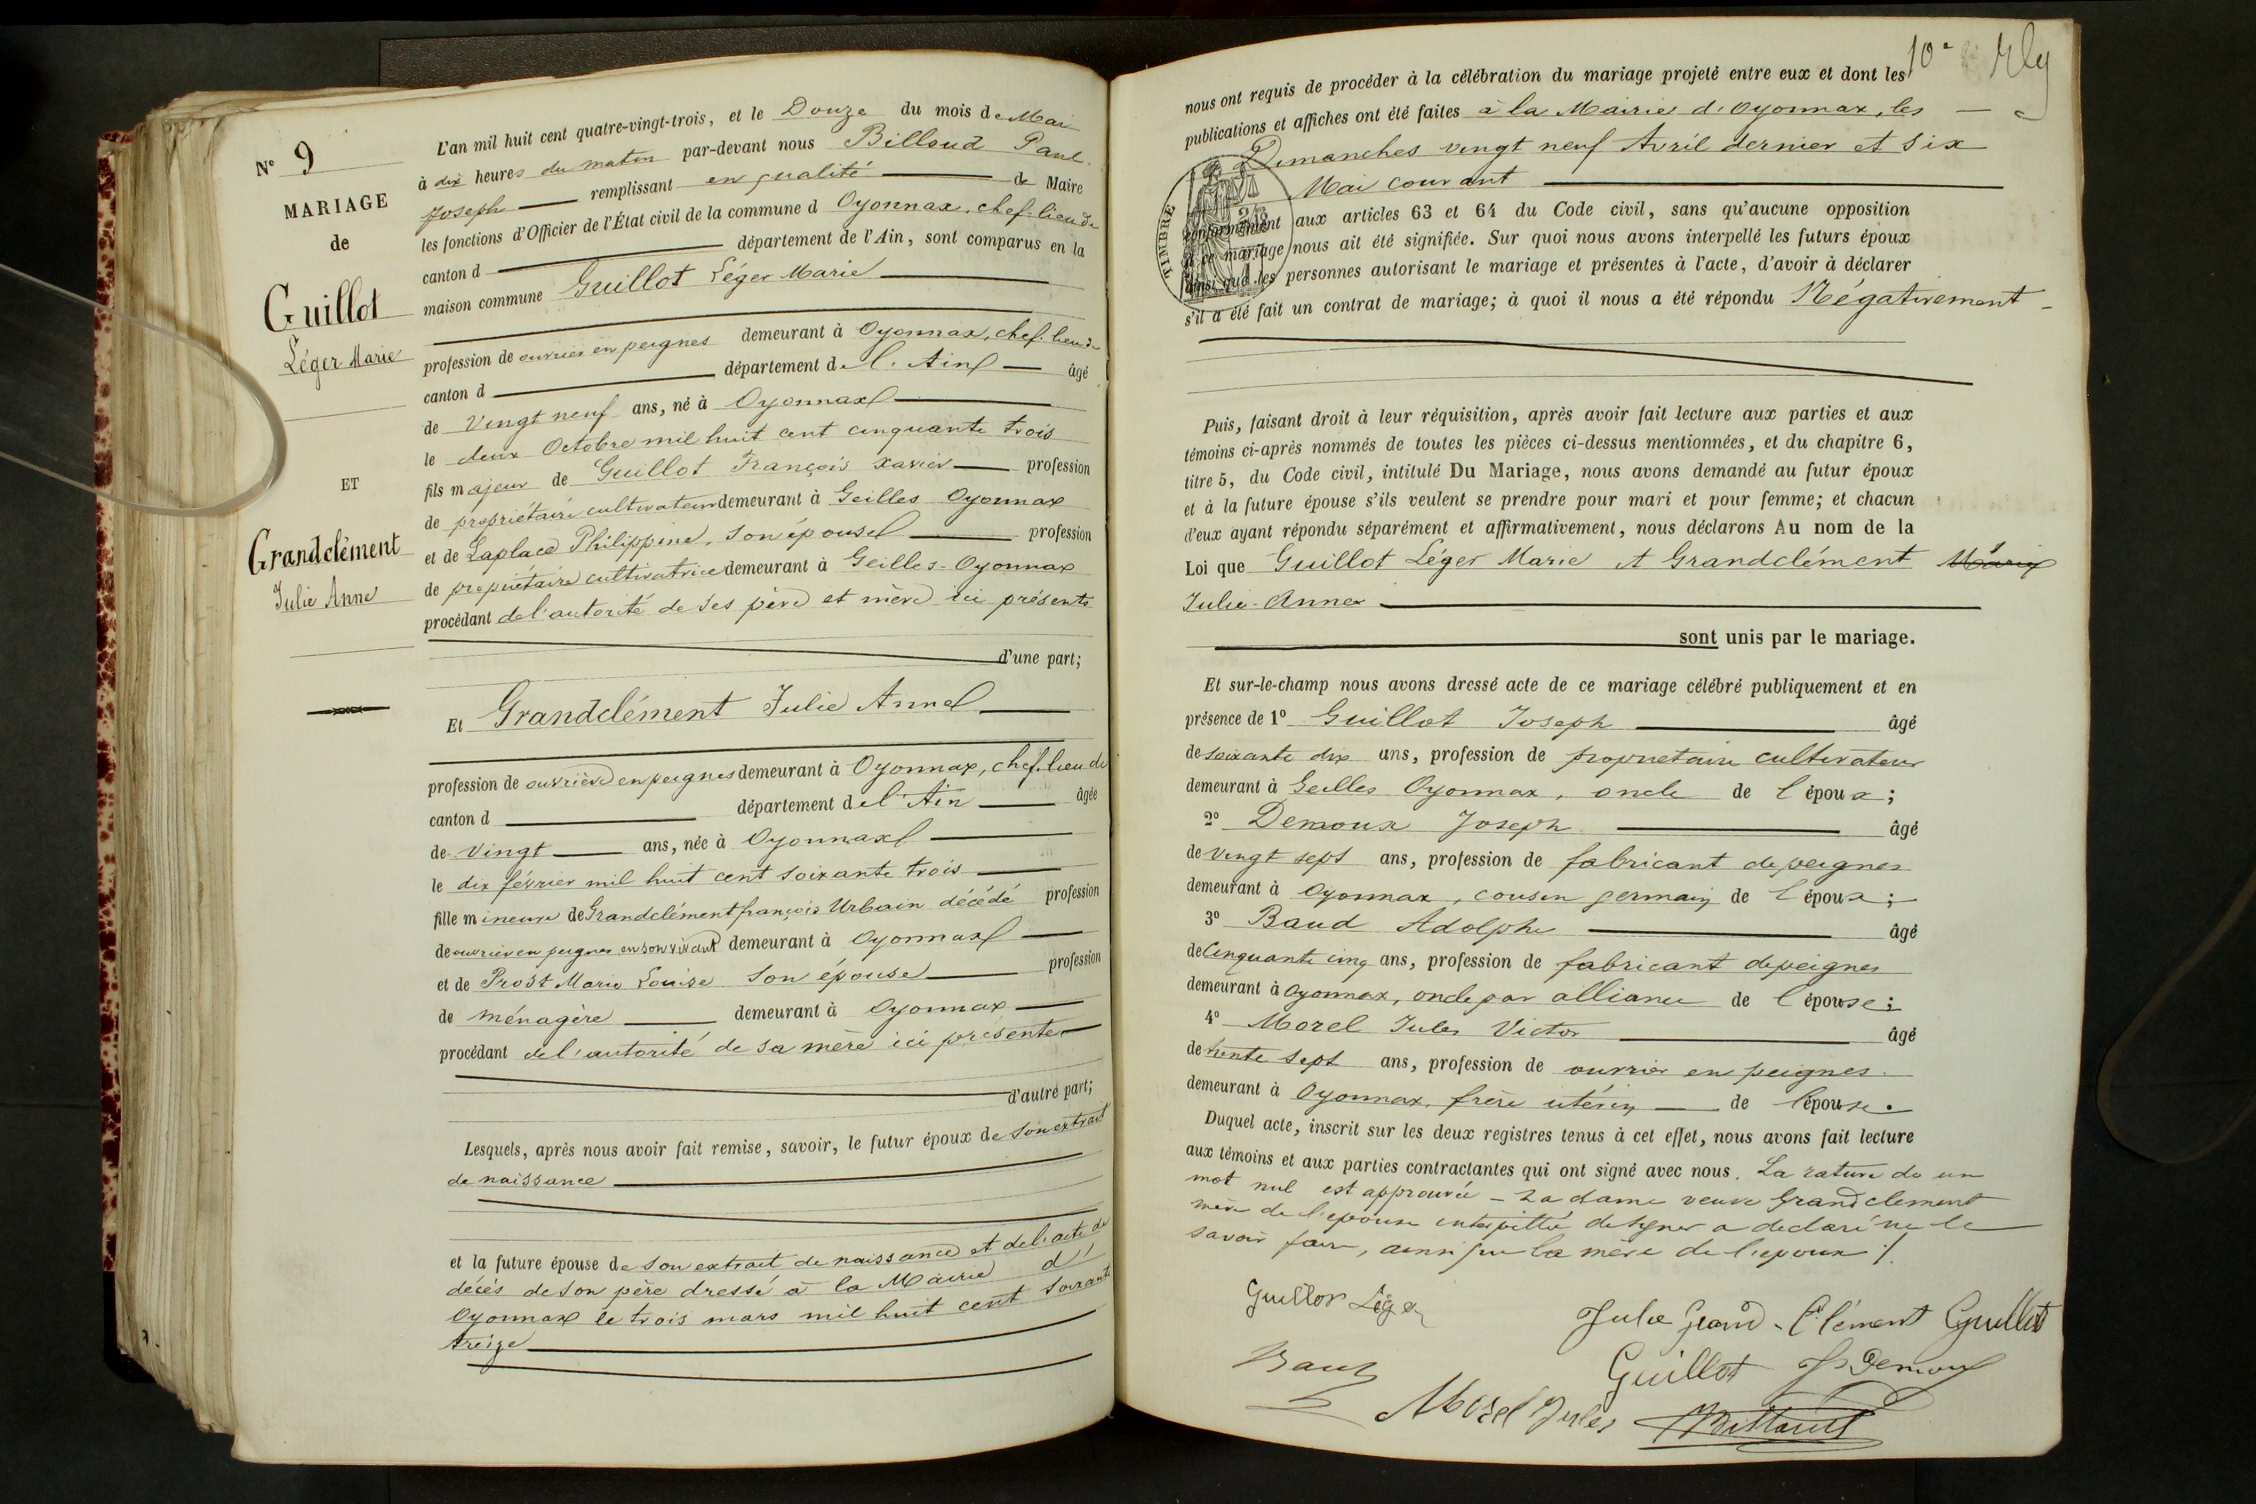 N° 9
MARIAGE
de
Guillot
Léger Marie
ET
Grandclément
Julie Anne
L'an mil huit cent quatre-vingt-trois, et le Douze du mois de Mai
à dix heures du matin par-devant nous Billoud Paul
Joseph remplissant en qualité de Maire
les fonctions d'Officier de l'État civil de la commune d Oyonnax, chef-lieu de
canton d département de l'Ain, sont comparus en la
maison commune Guillot Léger Marie
profession de ouvrier en peignes demeurant à Oyonnax, chef-lieu de
canton d département de l'Ain âgé
de Vingt neuf ans, né à Oyonnax
le deux Octobre mil huit cent cinquante trois
fils majeur de Guillot François Xavier profession
de propriétaire cultivateur demeurant à Geilles Oyonnax
et de Laplace Philippine, son épouse profession
de propriétaire cultivatrice demeurant à Geilles-Oyonnax
procédant de l'autorité de ses père et mère ici présents
d'une part;
Et Grandclément Julie Anne
profession de ouvrière en peignes demeurant à Oyonnax, chef-lieu de
canton d département de l'Ain âgée
de Vingt ans, née à Oyonnax
le dix février mil huit cent soixante trois
fille mineure de Grandclément françois Urbain décédé profession
de ouvrier en peignes en son vivant demeurant à Oyonnax
et de Prost Marie Louise son épouse profession
de ménagère demeurant à Oyonnax
procédant de l'autorité de sa mère ici présente
d'autre part;
Lesquels, après nous avoir fait remise, savoir, le futur époux de son extrait
de naissance
et la future épouse de son extrait de naissance et de l'acte de
décès de son père dressé à la Mairie d'
Oyonnax le trois mars mil huit cent soixante
treize
10e
nous ont requis de procéder à la célébration du mariage projeté entre eux et dont les
publications et affiches ont été faites à la Mairie d'Oyonnax, les
Dimanches vingt neuf Avril dernier et six
Mai courant
TIMBRE
conformément aux articles 63 et 64 du Code civil, sans qu'aucune opposition
à ce mariage nous ait été signifiée. Sur quoi nous avons interpellé les futurs époux
ainsi que les personnes autorisant le mariage et présentes à l'acte, d'avoir à déclarer
s'il a été fait un contrat de mariage; à quoi il nous a été répondu Négativement
Puis, faisant droit à leur réquisition, après avoir fait lecture aux parties et aux
témoins ci-après nommés de toutes les pièces ci-dessus mentionnées, et du chapitre 6,
titre 5, du Code civil, intitulé Du Mariage, nous avons demandé au futur époux
et à la future épouse s'ils veulent se prendre pour mari et pour femme; et chacun
d'eux ayant répondu séparément et affirmativement, nous déclarons Au nom de la
Loi que Guillot Léger Marie et Grandclément Marie
Julie-Anne
sont unis par le mariage.
Et sur-le-champ nous avons dressé acte de ce mariage célébré publiquement et en
présence de 1° Guillot Joseph âgé
de soixante dix ans, profession de propriétaire cultivateur
demeurant à Geilles Oyonnax, oncle de l'époux;
2° Demoux Joseph âgé
de vingt sept ans, profession de fabricant de peignes
demeurant à Oyonnax, cousin germain de l'époux;
3° Baud Adolphe âgé
de Cinquante cinq ans, profession de fabricant de peignes
demeurant à Oyonnax, oncle par alliance de l'épouse;
4° Morel Jules Victor âgé
de trente sept ans, profession de ouvrier en peignes
demeurant à Oyonnax, frère utérin de l'épouse.
Duquel acte, inscrit sur les deux registres tenus à cet effet, nous avons fait lecture
aux témoins et aux parties contractantes qui ont signé avec nous. La rature de un
mot nul est approuvée - La dame veuve Grandclement
mère de l'epouse interpellée de signer a declaré ne le
savoir faire, ainsi que la mère de l'epoux /.
Guillot Léger
Julie Grand-Clément Guillot
Baud
Guillot Js Demoux
Morel Jules
Billoud